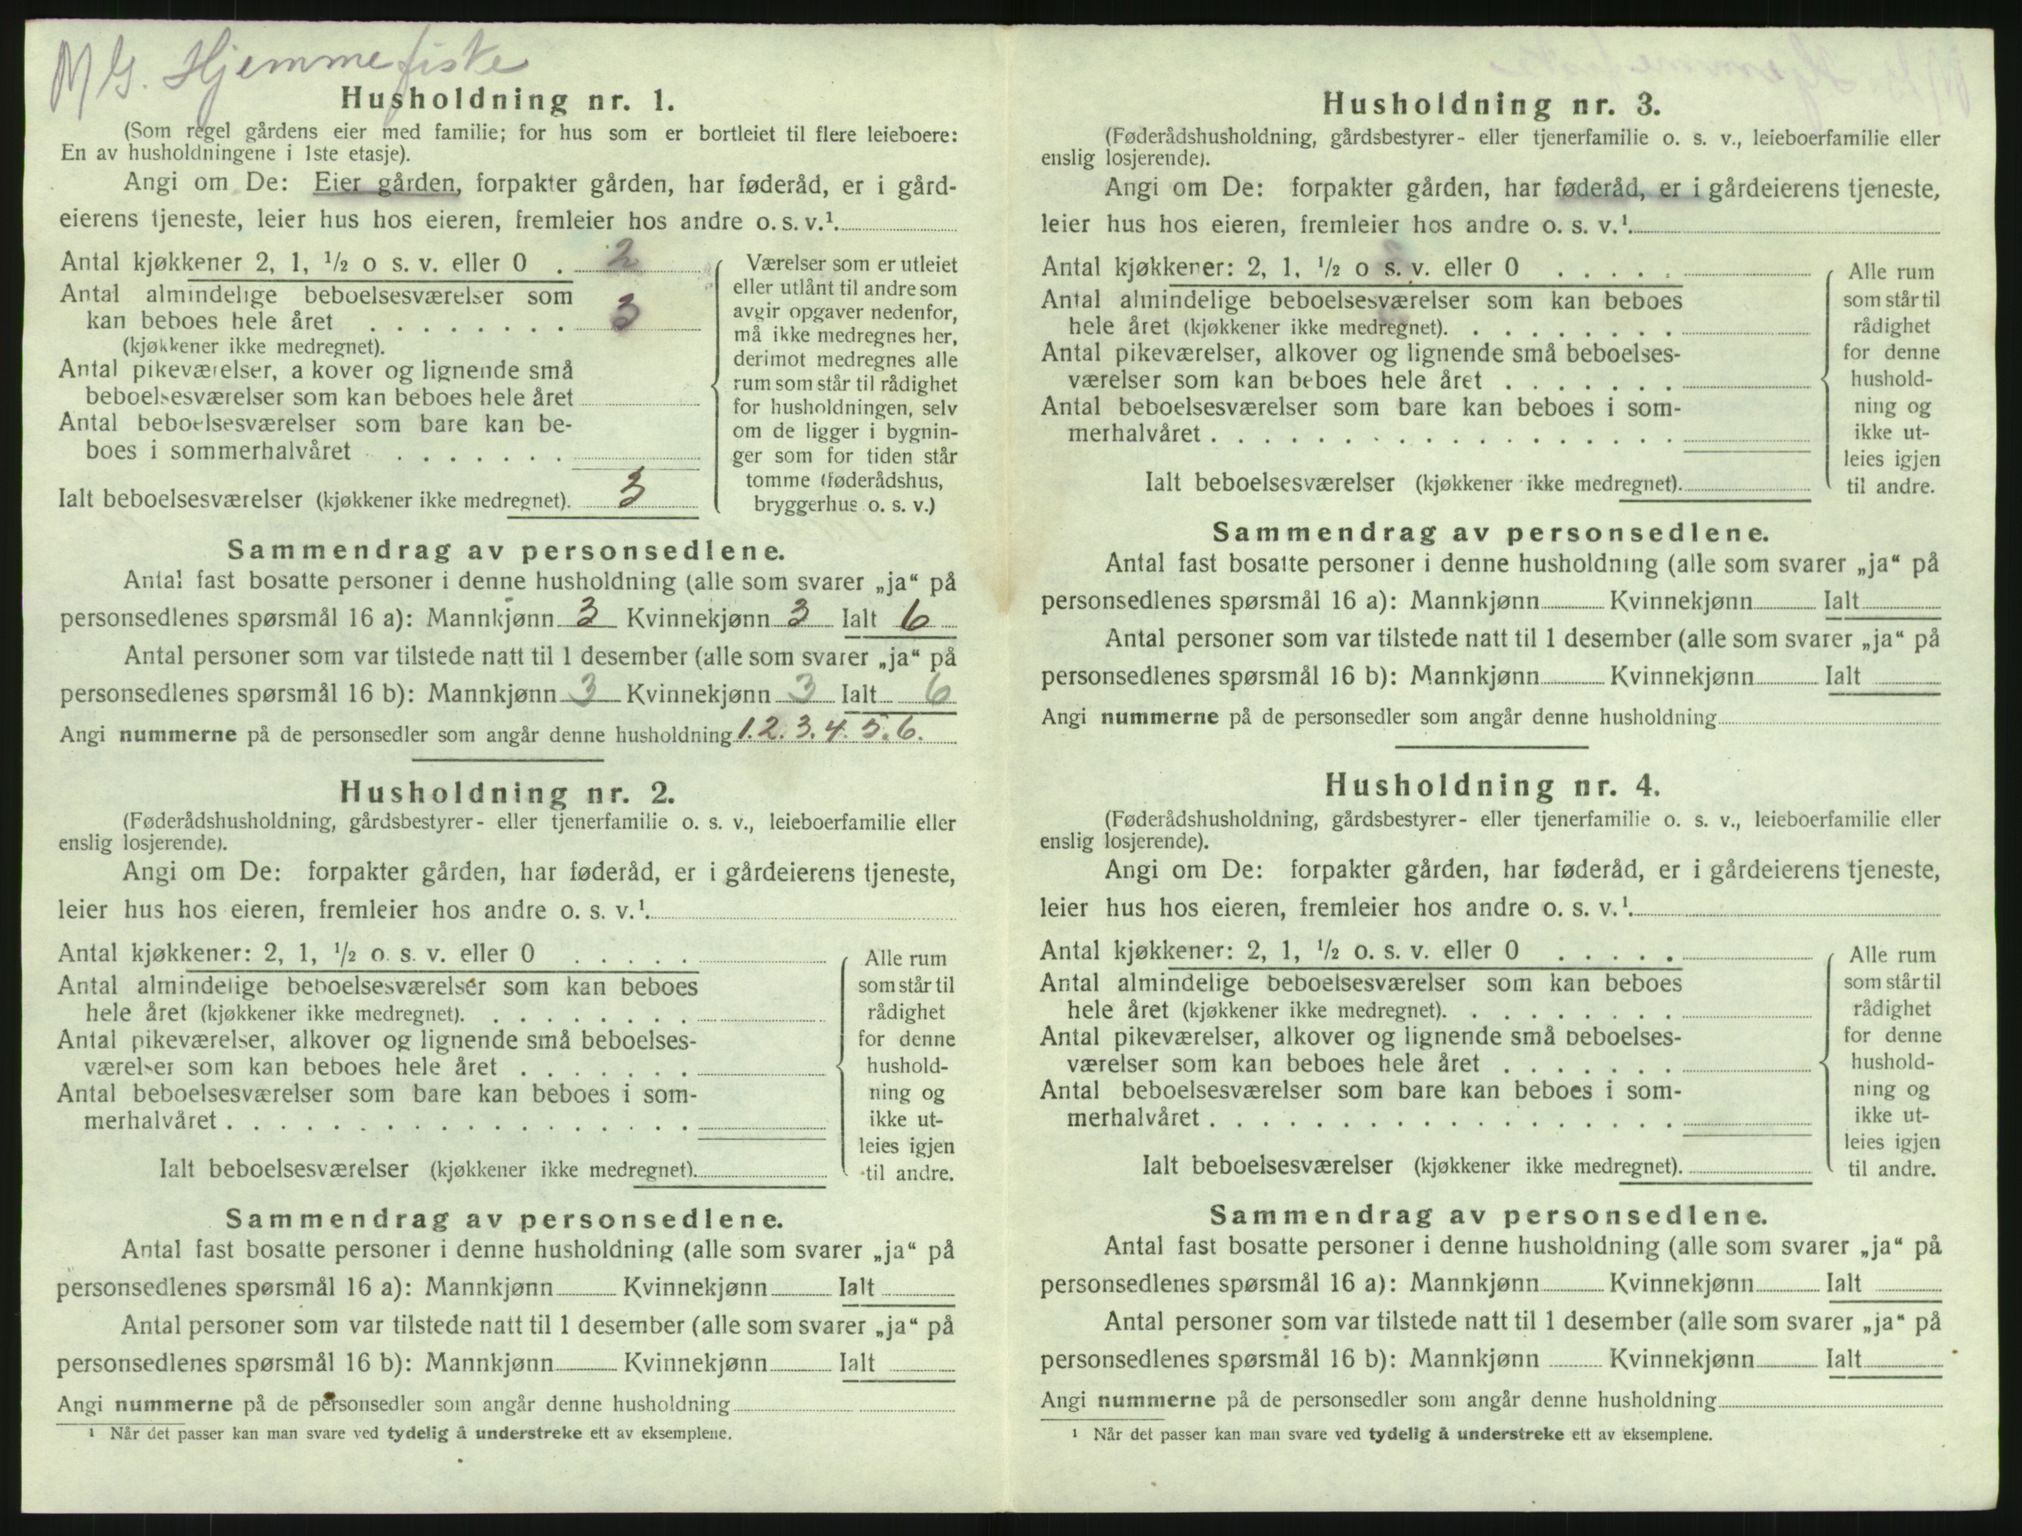 M G. Hjemmefiske
Husholdning nr. 1.
(Som regel gårdens eier med familie; for hus som er bortleiet til flere leieboere:
En av husholdningene i 1ste etasje).
Angi om De: Eier gården, forpakter gården, har føderåd, er i gård-
eierens tjeneste, leier hus hos eieren, fremleier hos andre o. s. v.¹.
Antal kjøkkener 2, 1, ½ o s. v. eller 0 . 2
Antal almindelige beboelsesværelser som
kan beboes hele året . . . . . . . . 3
(kjøkkener ikke medregnet).
Antal pikeværelser, a kover og lignende små
beboelsesværelser som kan beboes hele året
Antal beboelsesværelser som bare kan be-
boes i sommerhalvåret . . . . . . .
Ialt beboelsesværelser (kjøkkener ikke medregnet). 3
Værelser som er utleiet
eller utlånt til andre som
avgir opgaver nedenfor,
må ikke medregnes her,
derimot medregnes alle
rum som står til rådighet
for husholdningen, selv
om de ligger i bygnin-
ger som for tiden står
tomme (føderådshus,
bryggerhus o. s. v.)
Sammendrag av personsedlene.
Antal fast bosatte personer i denne husholdning (alle som svarer „ja“ på
personsedlenes spørsmål 16 a): Mannkjønn 3 Kvinnekjønn 3 Ialt 6
Antal personer som var tilstede natt til 1 desember (alle som svarer „ja“ på
personsedlenes spørsmål 16 b): Mannkjønn 3 Kvinnekjønn 3 Ialt 6
Angi nummerne på de personsedler som angår denne husholdning 1. 2. 3. 4. 5. 6.
Husholdning nr. 2.
(Føderådshusholdning, gårdsbestyrer- eller tjenerfamilie o. s. v., leieboerfamilie eller
enslig losjerende).
Angi om De: forpakter gården, har føderåd, er i gårdeierens tjeneste,
leier hus hos eieren, fremleier hos andre o. s. v.¹.
Antal kjøkkener: 2, 1, ½ o. s. v. eller 0 . . . . .
Antal almindelige beboelsesværelser som kan beboes
hele året (kjøkkener ikke medregnet). . . . . . . . .
Antal pikeværelser, alkover og lignende små beboelses-
værelser som kan beboes hele året . . . . . . .
Antal beboelsesværelser som bare kan beboes i som-
merhalvåret . . . . . . . . . . . . . . . . . .
Ialt beboelsesværelser (kjøkkener ikke medregnet).
Alle rum
som står til
rådighet
for denne
hushold-
ning og
ikke ut-
leies igjen
til andre.
Sammendrag av personsedlene.
Antal fast bosatte personer i denne husholdning (alle som svarer „ja“ på
personsedlenes spørsmål 16 a): Mannkjønn Kvinnekjønn Ialt
Antal personer som var tilstede natt til 1 desember (alle som svarer „ja“ på
personsedlenes spørsmål 16 b): Mannkjønn Kvinnekjønn Ialt
Angi nummerne på de personsedler som angår denne husholdning
¹ Når det passer kan man svare ved tydelig å understreke ett av eksemplene.
Husholdning nr. 3.
(Føderådshusholdning, gårdsbestyrer- eller tjenerfamilie o. s. v., leieboerfamilie eller
enslig losjerende).
Angi om De: forpakter gården, har føderåd, er i gårdeierens tjeneste,
leier hus hos eieren, fremleier hos andre o. s. v.¹.
Antal kjøkkener: 2, 1, ½ o s. v. eller 0 . . . . .
Antal almindelige beboelsesværelser som kan beboes
hele året (kjøkkener ikke medregnet). . . . . . . . .
Antal pikeværelser, alkover og lignende små beboelses-
værelser som kan beboes hele året . . . . . . .
Antal beboelsesværelser som bare kan beboes i som-
merhalvåret . . . . . . . . . . . . . . . . . .
Ialt beboelsesværelser (kjøkkener ikke medregnet).
Alle rum
som står til
rådighet
for denne
hushold-
ning og
ikke ut-
leies igjen
til andre.
Sammendrag av personsedlene.
Antal fast bosatte personer i denne husholdning (alle som svarer „ja“ på
personsedlenes spørsmål 16 a): Mannkjønn Kvinnekjønn Ialt
Antal personer som var tilstede natt til 1 desember (alle som svarer „ja“ på
personsedlenes spørsmål 16 b): Mannkjønn Kvinnekjønn Ialt
Angi nummerne på de personsedler som angår denne husholdning
Husholdning nr. 4.
(Føderådshusholdning, gårdsbestyrer- eller tjenerfamilie o. s. v., leieboerfamilie eller
enslig losjerende).
Angi om De: forpakter gården, har føderåd, er i gårdeierens tjeneste,
leier hus hos eieren, fremleier hos andre o. s. v.¹.
Antal kjøkkener: 2, 1, ½ o. s. v. eller 0 . . . . .
Antal almindelige beboelsesværelser som kan beboes
hele året (kjøkkener ikke medregnet). . . . . . . . .
Antal pikeværelser, alkover og lignende små beboelses-
værelser som kan beboes hele året . . . . . . .
Antal beboelsesværelser som bare kan beboes i som-
merhalvåret . . . . . . . . . . . . . . . . . .
Ialt beboelsesværelser (kjøkkener ikke medregnet).
Alle rum
som står til
rådighet
for denne
hushold-
ning og
ikke ut-
leies igjen
til andre.
Sammendrag av personsedlene.
Antal fast bosatte personer i denne husholdning (alle som svarer „ja“ på
personsedlenes spørsmål 16 a): Mannkjønn Kvinnekjønn Ialt
Antal personer som var tilstede natt til 1 desember (alle som svarer „ja“ på
personsedlenes spørsmål 16 b): Mannkjønn Kvinnekjønn Ialt
Angi nummerne på de personsedler som angår denne husholdning
¹ Når det passer kan man svare ved tydelig å understreke ett av eksemplene.